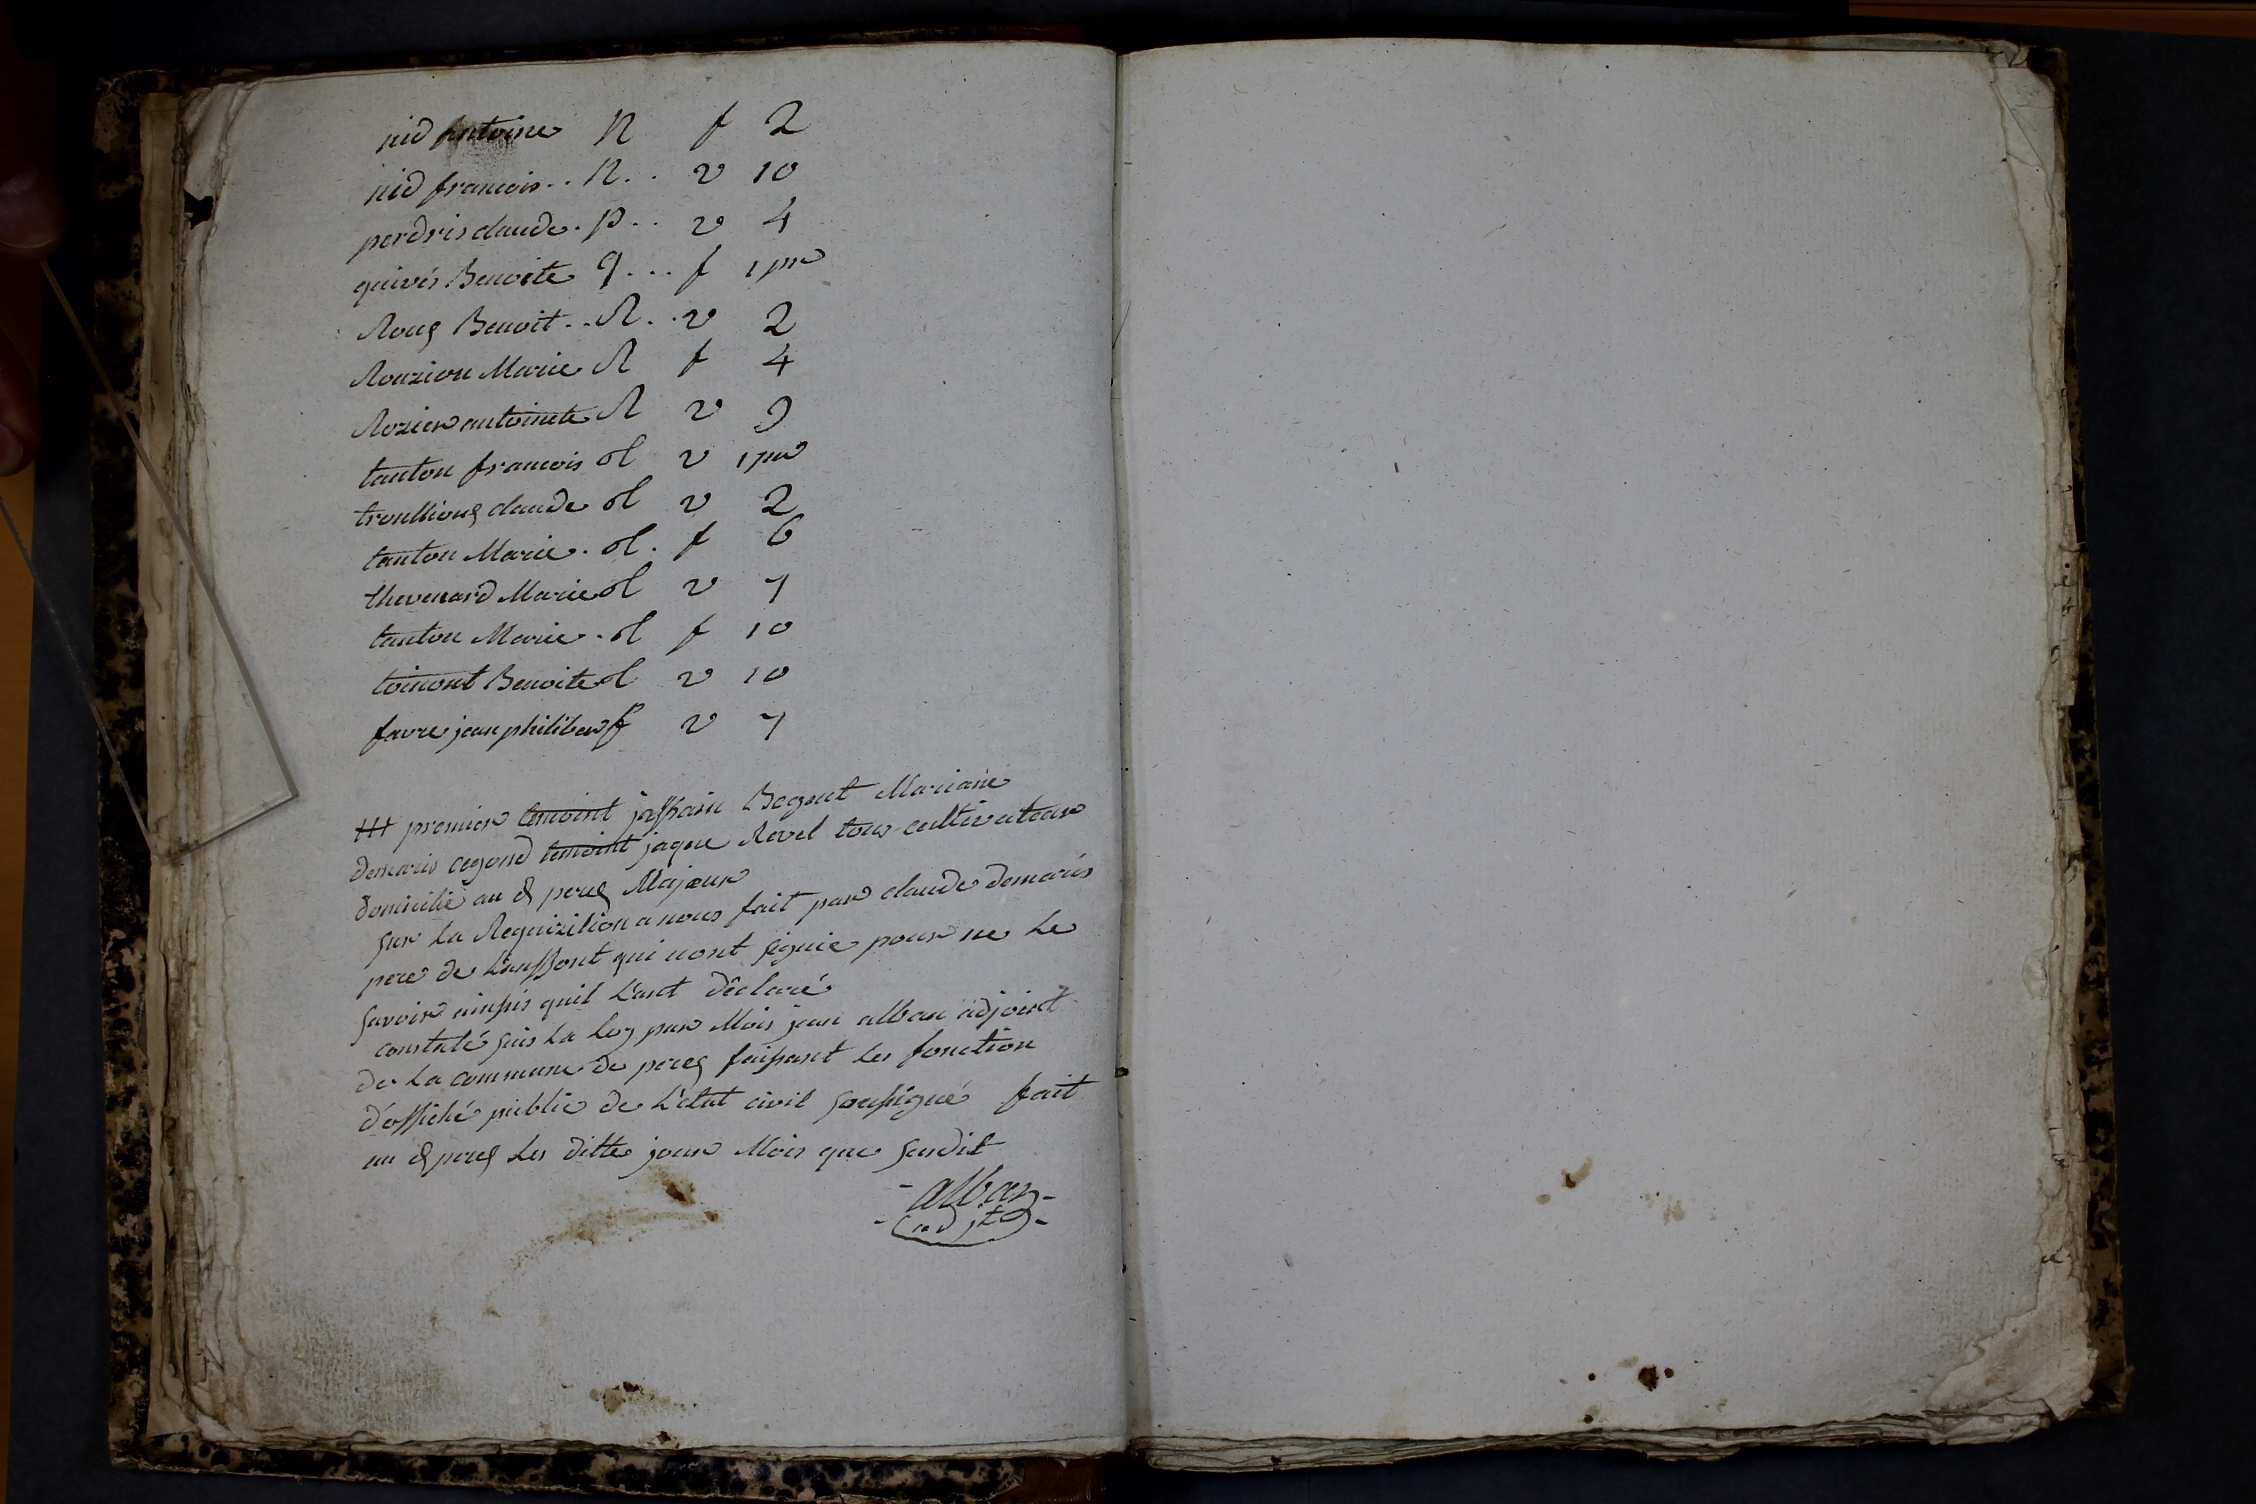 nid Antoine N f 2
nid francois .. N .. v 10
perdris claude . p .. v 4
quivés Benoite q ... f 1 pre
Roux Benoit .. R .. v 2
Rouzion Marie R f 4
Rozier antoinete R v 9
tanton francois T v 1 pre
troullioux claude T v 2
tanton Marie . T . f 6
thevenard Marie T v 7
tanton Marie . T f 10
toinont Benoite T v 10
favre jean philiber f v 7
premier temoint Bognut Mariane
demaris cegond temoint jaque Revel tous cultivateur
domicilié au perex Majeur
sur La Requizition a nous fait par claude demarés
pere de L'anffont qui nont signie pour ne Le
savoir ainssis quil L'ant déclaré
constaté suis La Loy par Mois jean alban adjoint
de La commune de perex faissant Les fonction
d'officié public de L'etat civil soussigné fait
au perex Les ditte jour Mois que susdit
alban
adjt